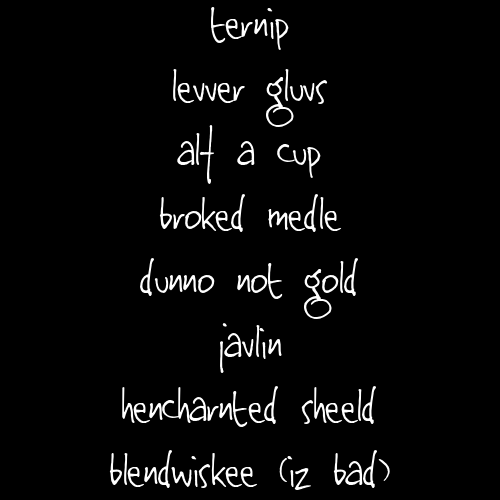 ternip
levver gluvs
alf a cup
broked medle
dunno not gold
javlin
hencharnted sheeld
blendwiskee (iz bad)